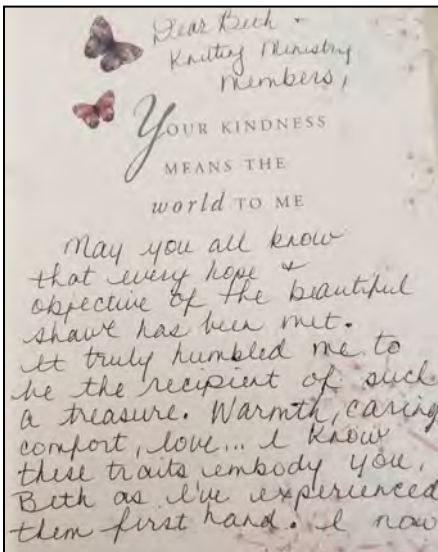 Dear Beth &
Knitting Ministry
Members,
YOUR KINDNESS
MEANS THE
world TO ME
May you all know
that every hope &
objective of the beautiful
shawl has been met.
It truly humbled me to
be the recipient of such
a treasure. Warmth, caring,
comfort, love... I know
these traits embody you,
Beth as I've experienced
them first hand. I now